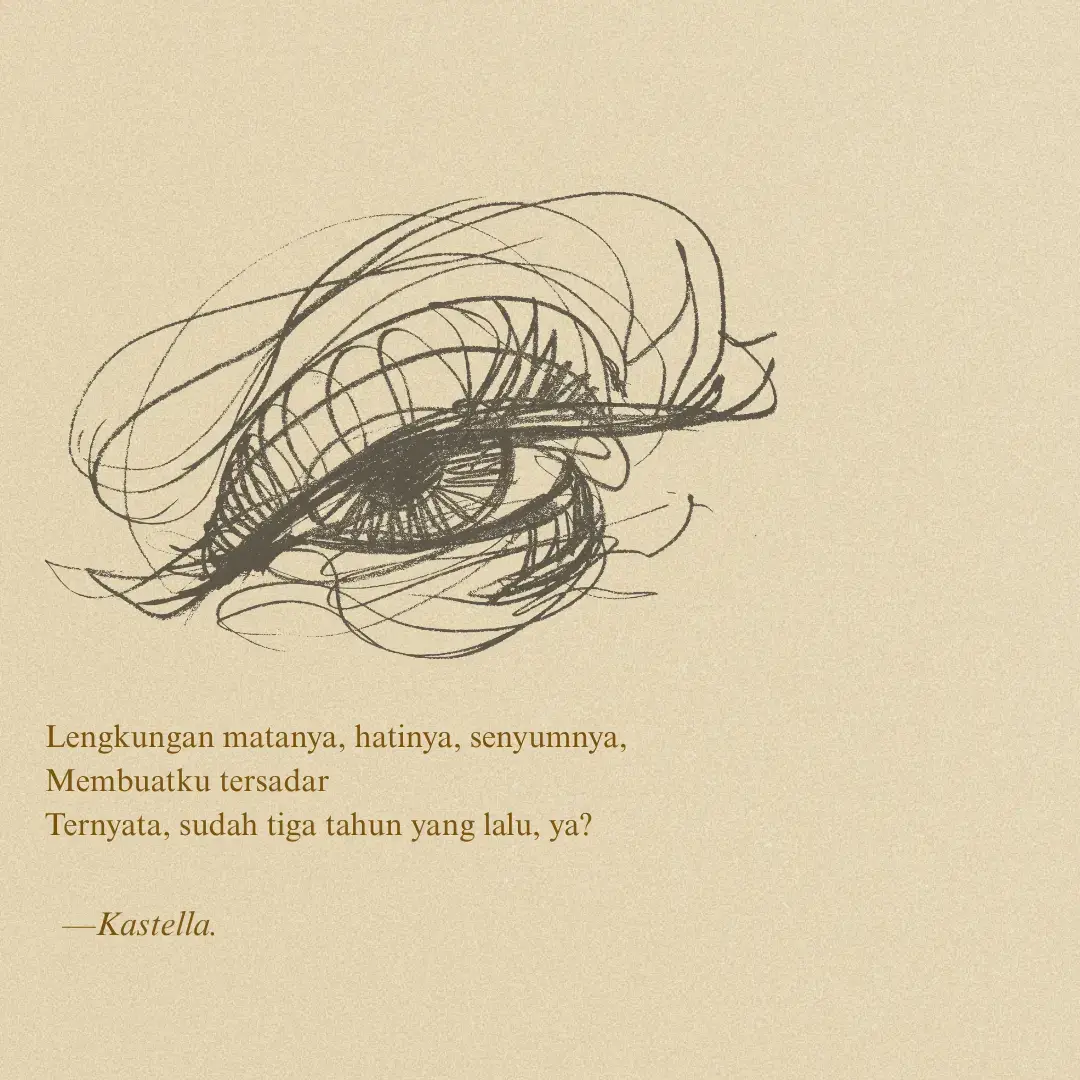 Lengkungan matanya, hatinya, senyumnya,
Membuatku tersadar
Ternyata, sudah tiga tahun yang lalu, ya?
—Kastella.